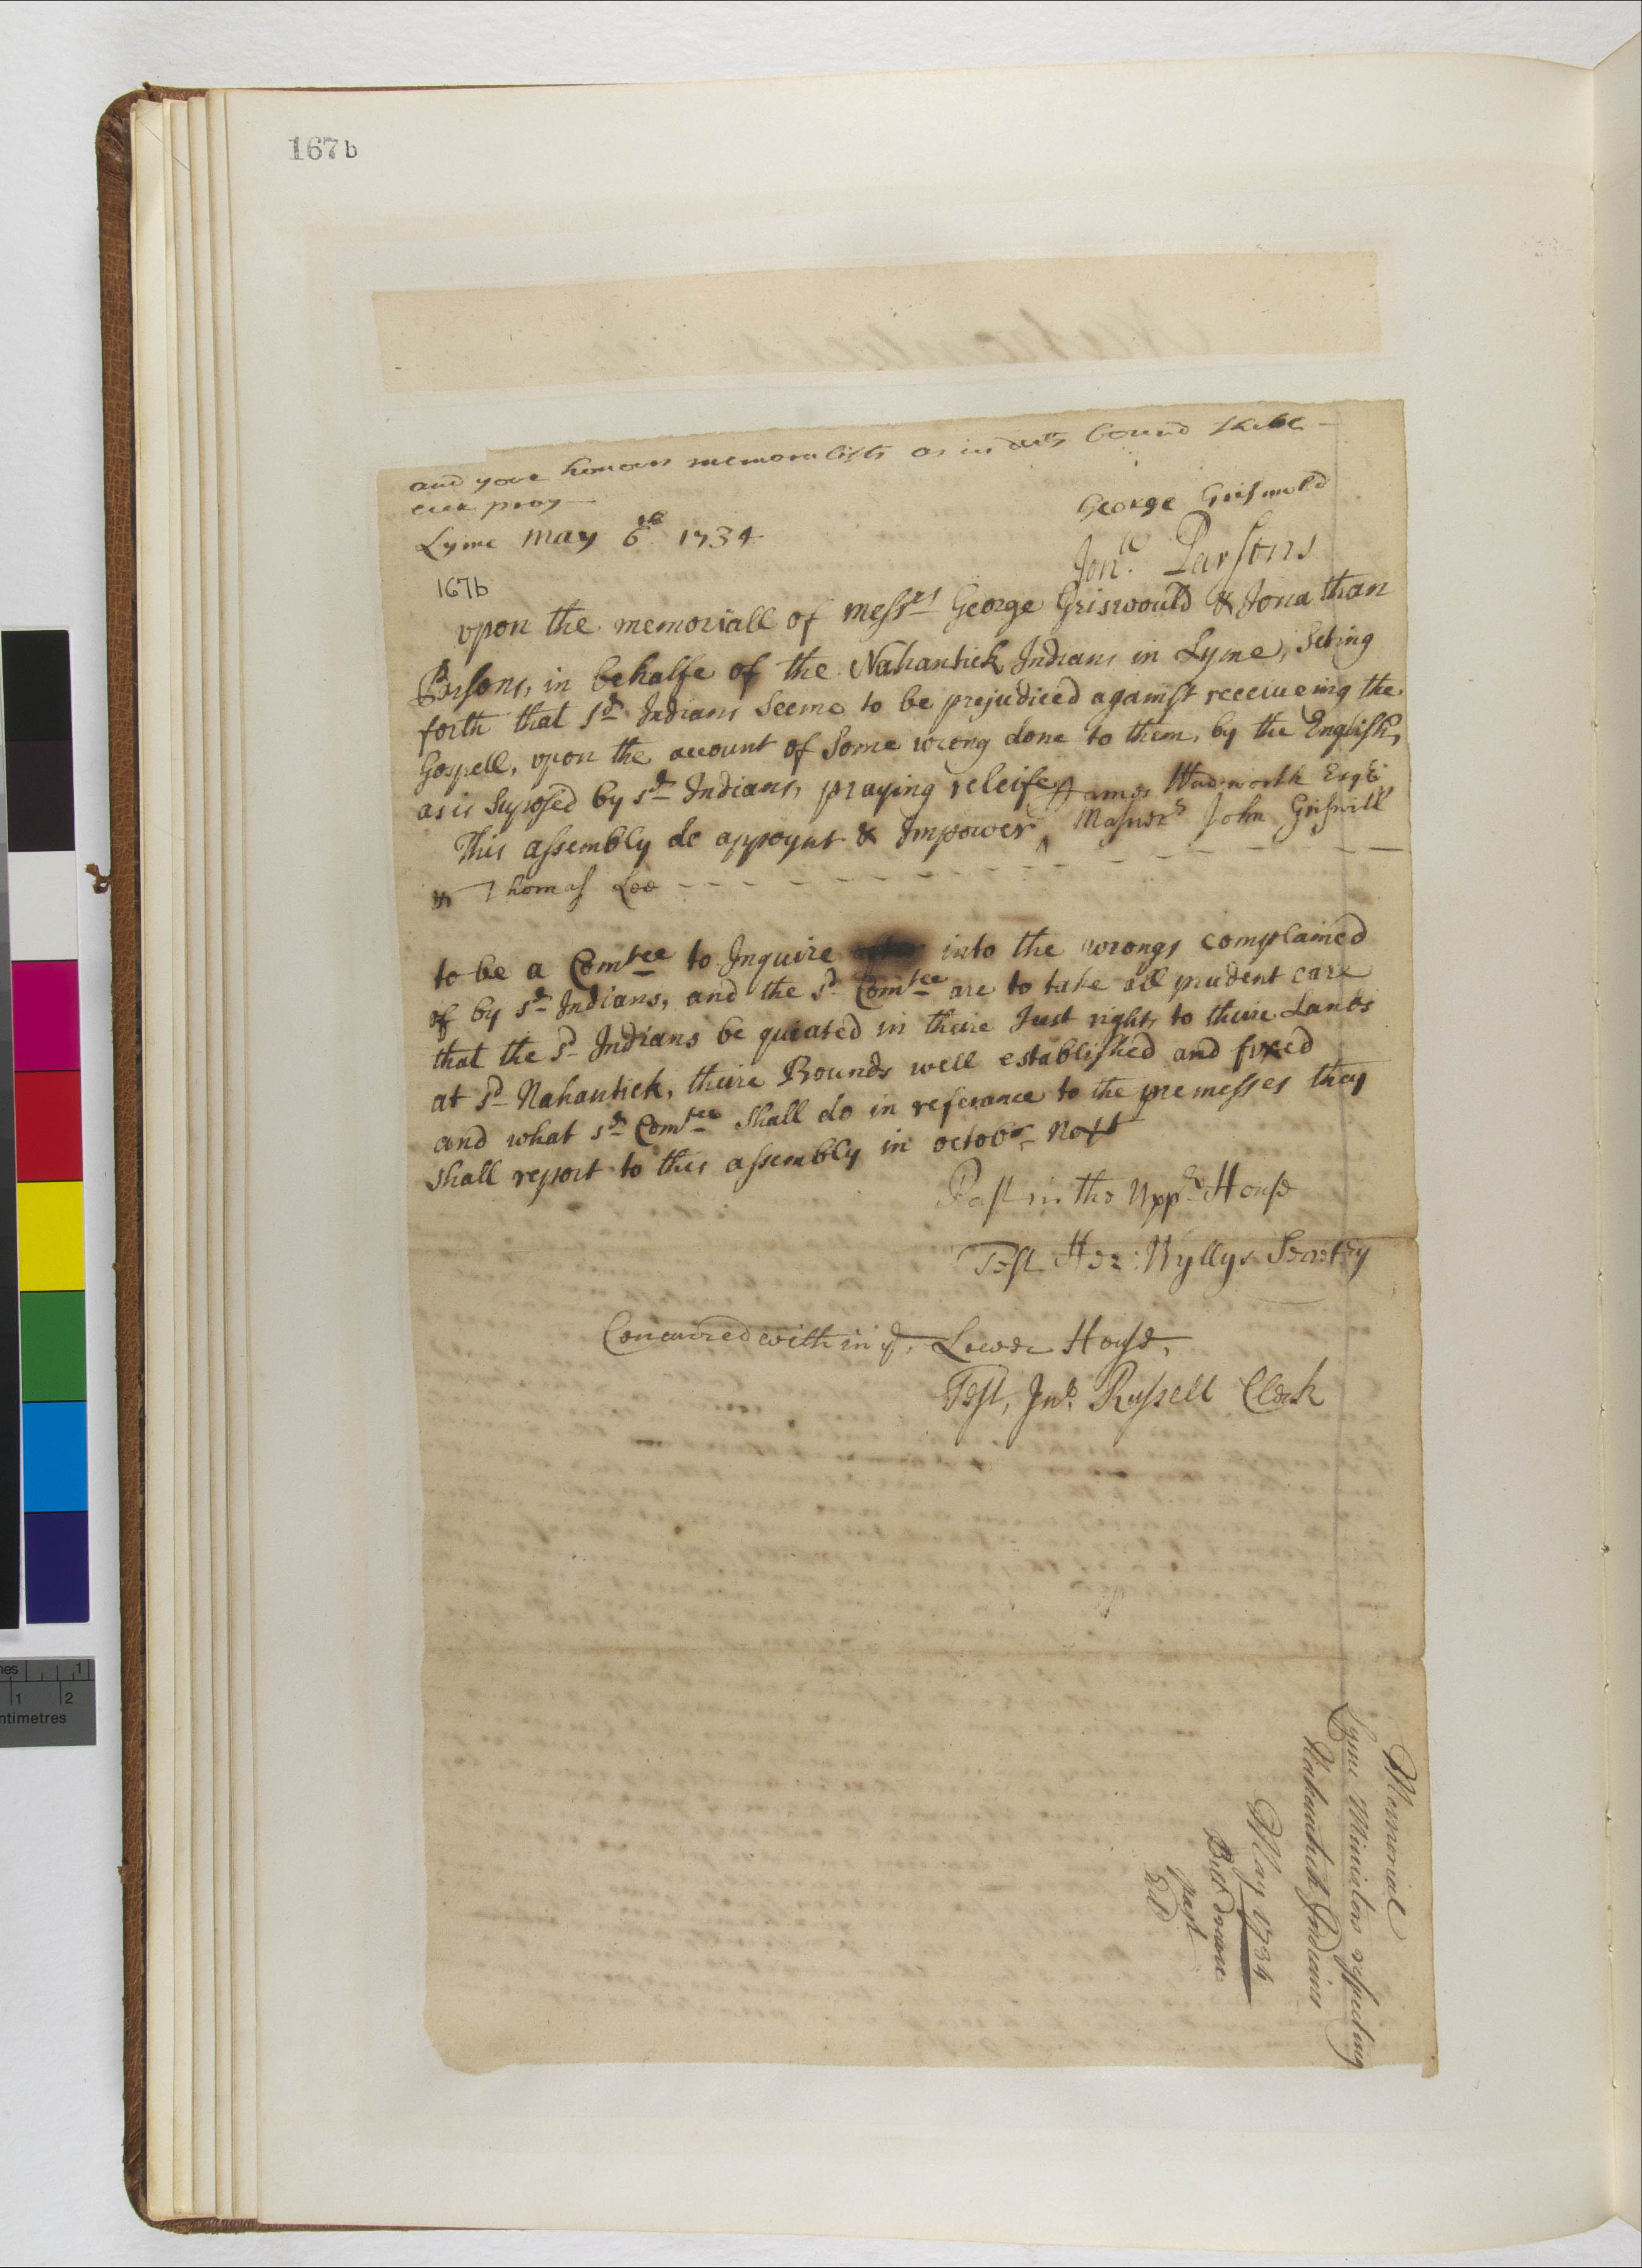 167b
and your honours memorialists as in duty bound shall
ever pray
George Griswold
Lyme may 6th 1734
Jonth Parsons
167b
vpon the memoriall of messrs George Griswould & Jonathan
Parsons, in behalfe of the Nahantick Indians in Lyme, Seting
forth that sd Indians Seeme to be prejudiced against receiueing the
Gospell, vpon the account of Some wrong done to them, by the English,
as is Suposed by sd Indians, praying releife
James Wadsworth Esqr
This assembly do appoynt & Impower ^ Messrs John Griswill
& Thomas Lee
to be a Comtee to Inquire into the wrongs complained
of by sd Indians, and the sd Comtee are to take all prudent care
that the sd Indians be quieted in theire Just right to theire Lands
at sd Nahantick, theire Bounds well established and fixed
and what sd Comtee shall do in referance to the premesses they
shall report to this assembly in octobr next
Past in the Uppr House
Test Hez: Wyllys Secretry
Concurred with in ye Lower House,
Test, Jno Russell Clerk
Memorial
Lyme Ministers respecting
Nahantick Indians
May 1734
Bill drawn
past
Ed
inches 1
1 2
centimetres